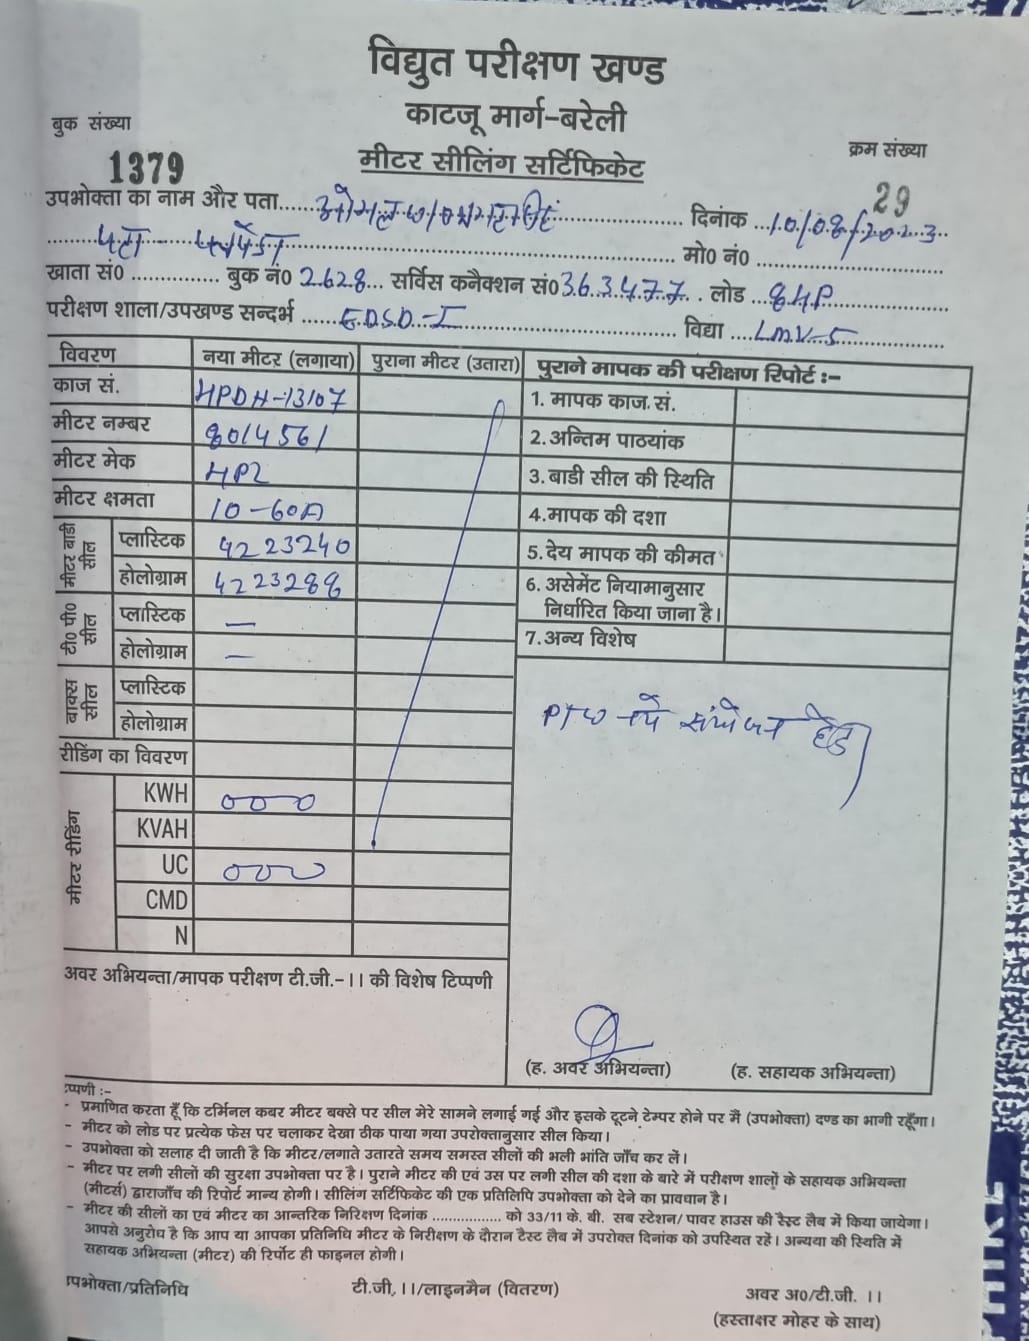 विद्युत परीक्षण खण्ड
काटजू मार्ग-बरेली
बुक संख्या
1379
मीटर सीलिंग सर्टिफिकेट
क्रम संख्या
29
उपभोक्ता का नाम और पता...... दिनांक ...10/08/2023
मो0 नं0
खाता सं0 ............ बुक नं0 2628... सर्विस कनैक्शन सं0 363477.. लोड ...8HP
परीक्षण शाला/उपखण्ड सन्दर्भ ......EDSD-I...... विद्या ....LMV-5
विवरण नया मीटर (लगाया) पुराना मीटर (उतारा) पुराने मापक की परीक्षण रिपोर्ट :-
काज सं. HPDH-13107
मीटर नम्बर 8014561
मीटर मेक HPL
मीटर क्षमता 10-60A
मीटर बाडी सील
प्लास्टिक 4223240
होलोग्राम 4223288
टी0 पी0 सील
प्लास्टिक —
होलोग्राम —
बाक्स सील
प्लास्टिक
होलोग्राम
रीडिंग का विवरण
मीटर रीडिंग
KWH 000
KVAH
UC 000
CMD
N
1. मापक काज.सं.
2. अन्तिम पाठयांक
3. बाडी सील की स्थिति
4. मापक की दशा
5. देय मापक की कीमत
6. असेमेंट नियामानुसार
निर्धारित किया जाना है।
7. अन्य विशेष
PTW संयोजन हेतु
अवर अभियन्ता/मापक परीक्षण टी.जी.-।। की विशेष टिप्पणी
(ह. अवर अभियन्ता) (ह. सहायक अभियन्ता)
प्पणी :-
- प्रमाणित करता हूँ कि टर्मिनल कबर मीटर बक्से पर सील मेरे सामने लगाई गई और इसके टूटने टेम्पर होने पर मैं (उपभोक्ता) दण्ड का भागी रहूँगा।
- मीटर को लोड पर प्रत्येक फेस पर चलाकर देखा ठीक पाया गया उपरोक्तानुसार सील किया।
- उपभोक्ता को सलाह दी जाती है कि मीटर/लगाते उतारते समय समस्त सीलों की भली भांति जाँच कर लें।
- मीटर पर लगी सीलों की सुरक्षा उपभोक्ता पर है। पुराने मीटर की एवं उस पर लगी सील की दशा के बारे में परीक्षण शालों के सहायक अभियन्ता
(मीटर्स) द्वाराजाँच की रिपोर्ट मान्य होगी। सीलिंग सर्टिफिकेट की एक प्रतिलिप उपभोक्ता को देने का प्रावधान है।
- मीटर की सीलों का एवं मीटर का आन्तरिक निरिक्षण दिनांक ................ को 33/11 के. बी. सब स्टेशन/ पावर हाउस की रैस्ट लैब में किया जायेगा।
आपसे अनुरोध है कि आप या आपका प्रतिनिधि मीटर के निरीक्षण के दौरान टैस्ट लैब में उपरोक्त दिनांक को उपस्थित रहें। अन्यया की स्थिति में
सहायक अभियन्ता (मीटर) की रिर्पोट ही फाइनल होगी।
पभोक्ता/प्रतिनिधि टी.जी, ।।/लाइनमैन (वितरण) अवर अ0/टी.जी. ।।
(हस्ताक्षर मोहर के साथ)